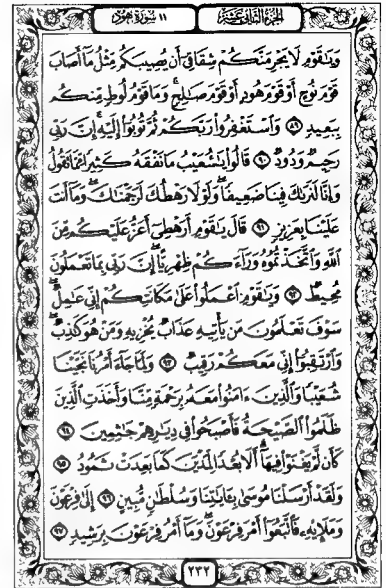 الجزء الثاني عشر
١١ سورة هود
وَيَٰقَوْمِ لَا يَجْرِمَنَّكُمْ شِقَاقِىٓ أَن يُصِيبَكُم مِّثْلُ مَآ أَصَابَ
قَوْمَ نُوحٍ أَوْ قَوْمَ هُودٍ أَوْ قَوْمَ صَٰلِحٍۚ وَمَا قَوْمُ لُوطٍ مِّنكُم
بِبَعِيدٍ ٨٩ وَٱسْتَغْفِرُوا۟ رَبَّكُمْ ثُمَّ تُوبُوٓا۟ إِلَيْهِۚ إِنَّ رَبِّى
رَحِيمٌ وَدُودٌ ٩٠ قَالُوا۟ يَٰشُعَيْبُ مَا نَفْقَهُ كَثِيرًا مِّمَّا تَقُولُ
وَإِنَّا لَنَرَىٰكَ فِينَا ضَعِيفًاۖ وَلَوْلَا رَهْطُكَ لَرَجَمْنَٰكَۖ وَمَآ أَنتَ
عَلَيْنَا بِعَزِيزٍ ٩١ قَالَ يَٰقَوْمِ أَرَهْطِىٓ أَعَزُّ عَلَيْكُم مِّنَ
ٱللَّهِ وَٱتَّخَذْتُمُوهُ وَرَآءَكُمْ ظِهْرِيًّاۖ إِنَّ رَبِّى بِمَا تَعْمَلُونَ
مُحِيطٌ ٩٢ وَيَٰقَوْمِ ٱعْمَلُوا۟ عَلَىٰ مَكَانَتِكُمْ إِنِّى عَٰمِلٌۖ
سَوْفَ تَعْلَمُونَ مَن يَأْتِيهِ عَذَابٌ يُخْزِيهِ وَمَنْ هُوَ كَٰذِبٌۖ
وَٱرْتَقِبُوٓا۟ إِنِّى مَعَكُمْ رَقِيبٌ ٩٣ وَلَمَّا جَآءَ أَمْرُنَا نَجَّيْنَا
شُعَيْبًا وَٱلَّذِينَ ءَامَنُوا۟ مَعَهُۥ بِرَحْمَةٍ مِّنَّا وَأَخَذَتِ ٱلَّذِينَ
ظَلَمُوا۟ ٱلصَّيْحَةُ فَأَصْبَحُوا۟ فِى دِيَٰرِهِمْ جَٰثِمِينَ ٩٤
كَأَن لَّمْ يَغْنَوْا۟ فِيهَآۗ أَلَا بُعْدًا لِّمَدْيَنَ كَمَا بَعِدَتْ ثَمُودُ ٩٥
وَلَقَدْ أَرْسَلْنَا مُوسَىٰ بِـَٔايَٰتِنَا وَسُلْطَٰنٍ مُّبِينٍ ٩٦ إِلَىٰ فِرْعَوْنَ
وَمَلَإِيهِۦ فَٱتَّبَعُوٓا۟ أَمْرَ فِرْعَوْنَۖ وَمَآ أَمْرُ فِرْعَوْنَ بِرَشِيدٍ ٩٧
٢٣٢